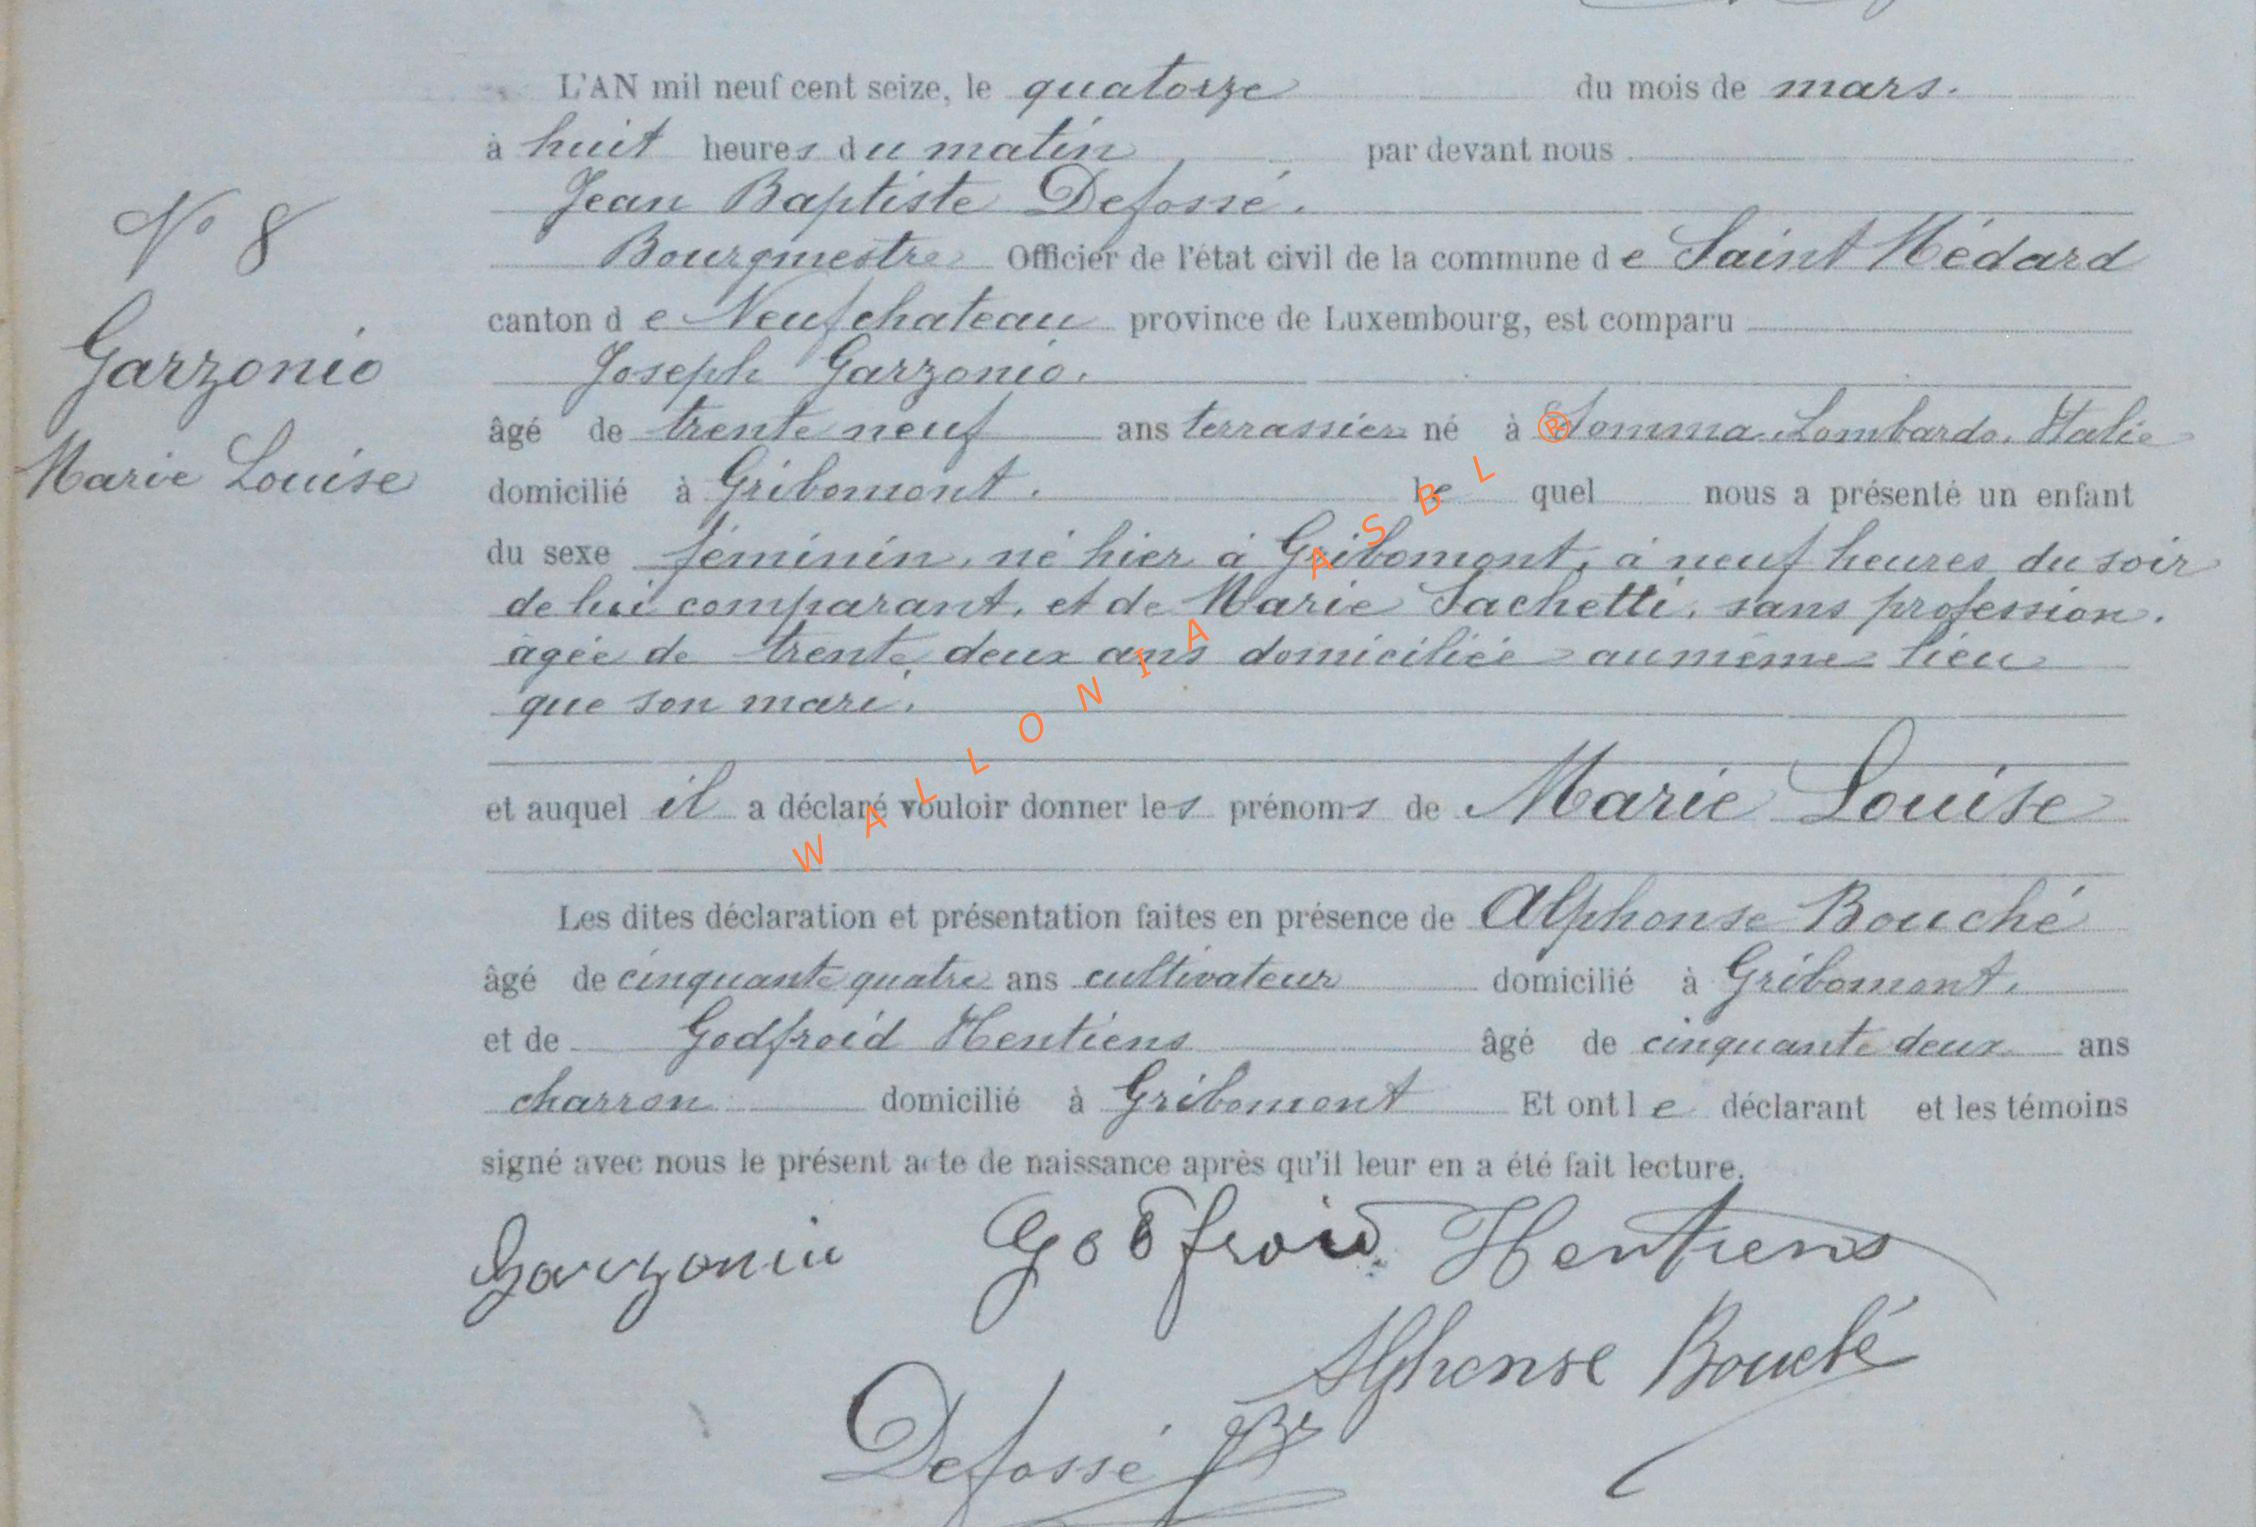 L'AN mil neuf cent seize, le quatorze du mois de mars.
à huit heures du matin par devant nous
Jean Baptiste Defossé.
Bourgmestre Officier de l'état civil de la commune de Saint Médard
canton de Neufchateau province de Luxembourg, est comparu
Joseph Garzonio.
âgé de trente neuf ans terrassier né à Somma. Lombardo. Italie
domicilié à Gribomont. le quel nous a présenté un enfant
du sexe féminin, né hier à Gribomont, à neuf heures du soir
de lui comparant, et de Marie Sachetti, sans profession.
âgée de trente deux ans domiciliée au même lieu
que son mari.
et auquel il a déclaré vouloir donner les prénoms de Marie Louise
Les dites déclaration et présentation faites en présence de Alphonse Bouché
âgé de cinquante quatre ans cultivateur domicilié à Gribomont.
et de Godfroid Hentiens âgé de cinquante deux ans
charron domicilié à Gribomont Et ont le déclarant et les témoins
signé avec nous le présent acte de naissance après qu'il leur en a été fait lecture.
Garzonio Godfroid Hentiens
Alphonse Bouché
Defossé JB
N° 8
Garzonio
Marie Louise
WALLONIA ASBL ®